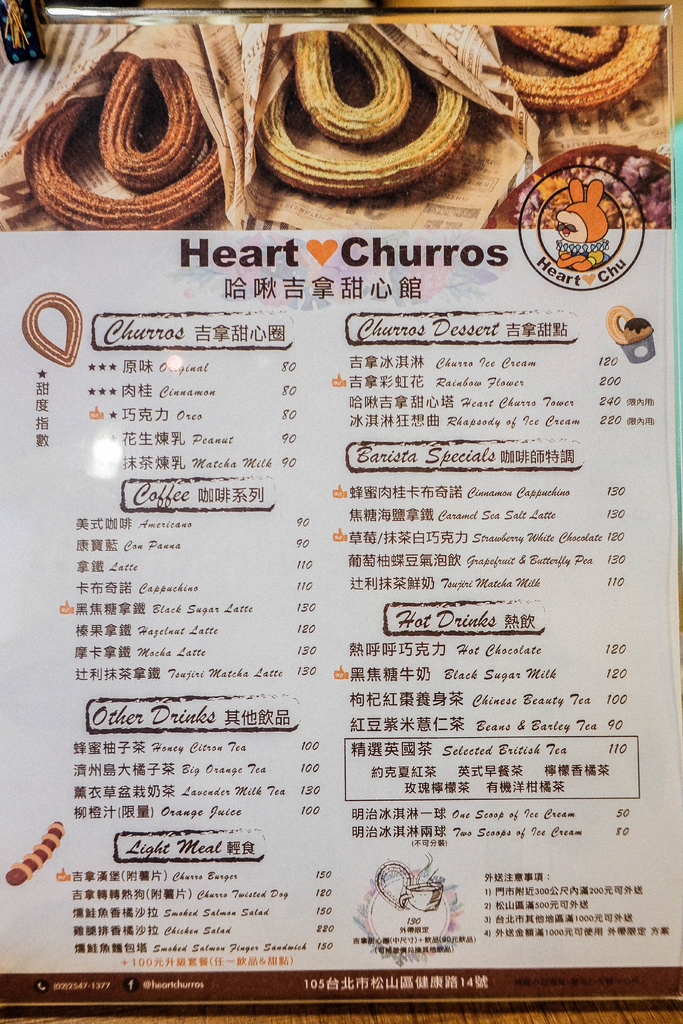 Heart Churros
哈啾吉拿甜心館
Heart Chu
Churros 吉拿甜心圈
★甜度指數
★★★ 原味 Original 80
★★★ 肉桂 Cinnamon 80
★ 巧克力 Oreo 80
★ 花生煉乳 Peanut 90
抹茶煉乳 Matcha Milk 90
Coffee 咖啡系列
美式咖啡 Americano 90
康寶藍 Con Panna 90
拿鐵 Latte 110
卡布奇諾 Cappuchino 110
黑焦糖拿鐵 Black Sugar Latte 130
榛果拿鐵 Hazelnut Latte 120
摩卡拿鐵 Mocha Latte 130
辻利抹茶拿鐵 Tsujiri Matcha Latte 130
Other Drinks 其他飲品
蜂蜜柚子茶 Honey Citron Tea 100
濟州島大橘子茶 Big Orange Tea 100
薰衣草盆栽奶茶 Lavender Milk Tea 130
柳橙汁(限量) Orange Juice 100
Light Meal 輕食
吉拿漢堡(附薯片) Churro Burger 150
吉拿轉轉熱狗(附薯片) Churro Twisted Dog 120
燻鮭魚香橘沙拉 Smoked Salmon Salad 150
雞腿排香橘沙拉 Chicken Salad 220
燻鮭魚麵包塔 Smoked Salmon Finger Sandwich 150
+100元升級套餐(任一飲品&甜點)
Churros Dessert 吉拿甜點
吉拿冰淇淋 Churro Ice Cream 120
吉拿彩虹花 Rainbow Flower 200
哈啾吉拿甜心塔 Heart Churro Tower 240 (限內用)
冰淇淋狂想曲 Rhapsody of Ice Cream 220 (限內用)
Barista Specials 咖啡師特調
蜂蜜肉桂卡布奇諾 Cinnamon Cappuchino 130
焦糖海鹽拿鐵 Caramel Sea Salt Latte 130
草莓/抹茶白巧克力 Strawberry White Chocolate 120
葡萄柚蝶豆氣泡飲 Grapefruit & Butterfly Pea 130
辻利抹茶鮮奶 Tsujiri Matcha Milk 110
Hot Drinks 熱飲
熱呼呼巧克力 Hot Chocolate 120
黑焦糖牛奶 Black Sugar Milk 120
枸杞紅棗養身茶 Chinese Beauty Tea 100
紅豆紫米薏仁茶 Beans & Barley Tea 90
精選英國茶 Selected British Tea 110
約克夏紅茶 英式早餐茶 檸檬香橘茶
玫瑰檸檬茶 有機洋柑橘茶
明治冰淇淋一球 One Scoop of Ice Cream 50
明治冰淇淋兩球 Two Scoops of Ice Cream 80
(不可分裝)
190
外帶限定
吉拿甜心圈(中尺寸)+飲品(90元飲品)
(可補差價兌換其他飲品)
外送注意事項：
1) 門市附近300公尺內滿200元可外送
2) 松山區滿500元可外送
3) 台北市其他地區滿1000元可外送
4) 外送金額滿1000元可使用 外帶限定 方案
(02)2547-1377 @heartchurros 105台北市松山區健康路14號